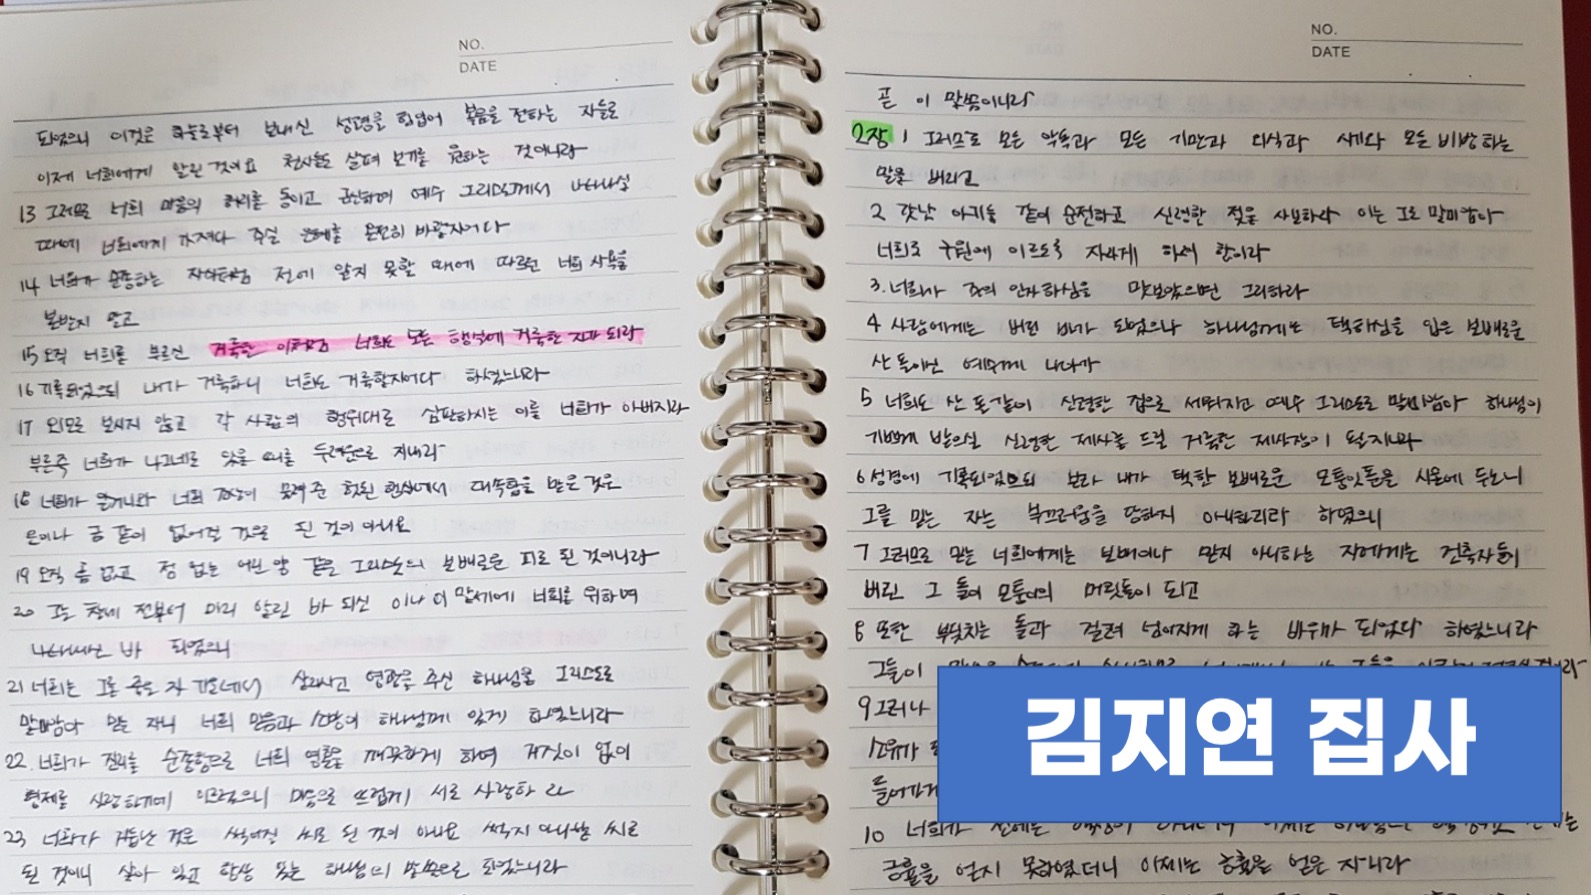 NO.
DATE
되었으니 이것은 하늘로부터 보내신 성령을 힘입어 복음을 전하는 자들로
이제 너희에게 알린 것이요 천사들도 살펴 보기를 원하는 것이니라
13 그러므로 너희 마음의 허리를 동이고 근신하여 예수 그리스도께서 나타나실
때에 너희에게 가져다 주실 은혜를 온전히 바랄지어다
14 너희가 순종하는 자식처럼 전에 알지 못할 때에 따르던 너희 사욕을
본받지 말고
15 오직 너희를 부르신 거룩한 이처럼 너희도 모든 행실에 거룩한 자가 되라
16 기록되었으되 내가 거룩하니 너희도 거룩할지어다 하셨느니라
17 외모로 보시지 않고 각 사람의 행위대로 심판하시는 이를 너희가 아버지라
부른즉 너희가 나그네로 있을 때를 두려움으로 지내라
18 너희가 알거니와 너희 조상이 물려 준 헛된 행실에서 대속함을 받은 것은
은이나 금 같이 없어질 것으로 된 것이 아니요
19 오직 흠 없고 점 없는 어린 양 같은 그리스도의 보배로운 피로 된 것이니라
20 그는 창세 전부터 미리 알린 바 되신 이나 이 말세에 너희를 위하여
나타내신 바 되었으니
21 너희는 그를 죽은 자 가운데서 살리시고 영광을 주신 하나님을 그리스도로
말미암아 믿는 자니 너희 믿음과 소망이 하나님께 있게 하셨느니라
22. 너희가 진리를 순종함으로 너희 영혼을 깨끗하게 하여 거짓이 없이
형제를 사랑하기에 이르렀으니 마음으로 뜨겁게 서로 사랑하라
23 너희가 거듭난 것은 썩어질 씨로 된 것이 아니요 썩지 아니할 씨로
된 것이니 살아 있고 항상 있는 하나님의 말씀으로 되었느니라
NO.
DATE
곧 이 말씀이니라
2장 1 그러므로 모든 악독과 모든 기만과 외식과 시기와 모든 비방하는
말을 버리고
2 갓난 아기들 같이 순전하고 신령한 젖을 사모하라 이는 그로 말미암아
너희로 구원에 이르도록 자라게 하려 함이라
3. 너희가 주의 인자하심을 맛보았으면 그리하라
4 사람에게는 버린 바가 되었으나 하나님께는 택하심을 입은 보배로운
산 돌이신 예수께 나아가
5 너희도 산 돌 같이 신령한 집으로 세워지고 예수 그리스도로 말미암아 하나님이
기쁘게 받으실 신령한 제사를 드릴 거룩한 제사장이 될지니라
6 성경에 기록되었으되 보라 내가 택한 보배로운 모퉁잇돌을 시온에 두노니
그를 믿는 자는 부끄러움을 당하지 아니하리라 하였으니
7 그러므로 믿는 너희에게는 보배이나 믿지 아니하는 자에게는 건축자들이
버린 그 돌이 모퉁이의 머릿돌이 되고
8 또한 부딪치는 돌과 걸려 넘어지게 하는 바위가 되었다 하였느니라
그들이
9 그러나
소유가
들어가게
10 너희가 전에는
긍휼을 얻지 못하였더니 이제는 긍휼을 얻은 자니라
김지연 집사